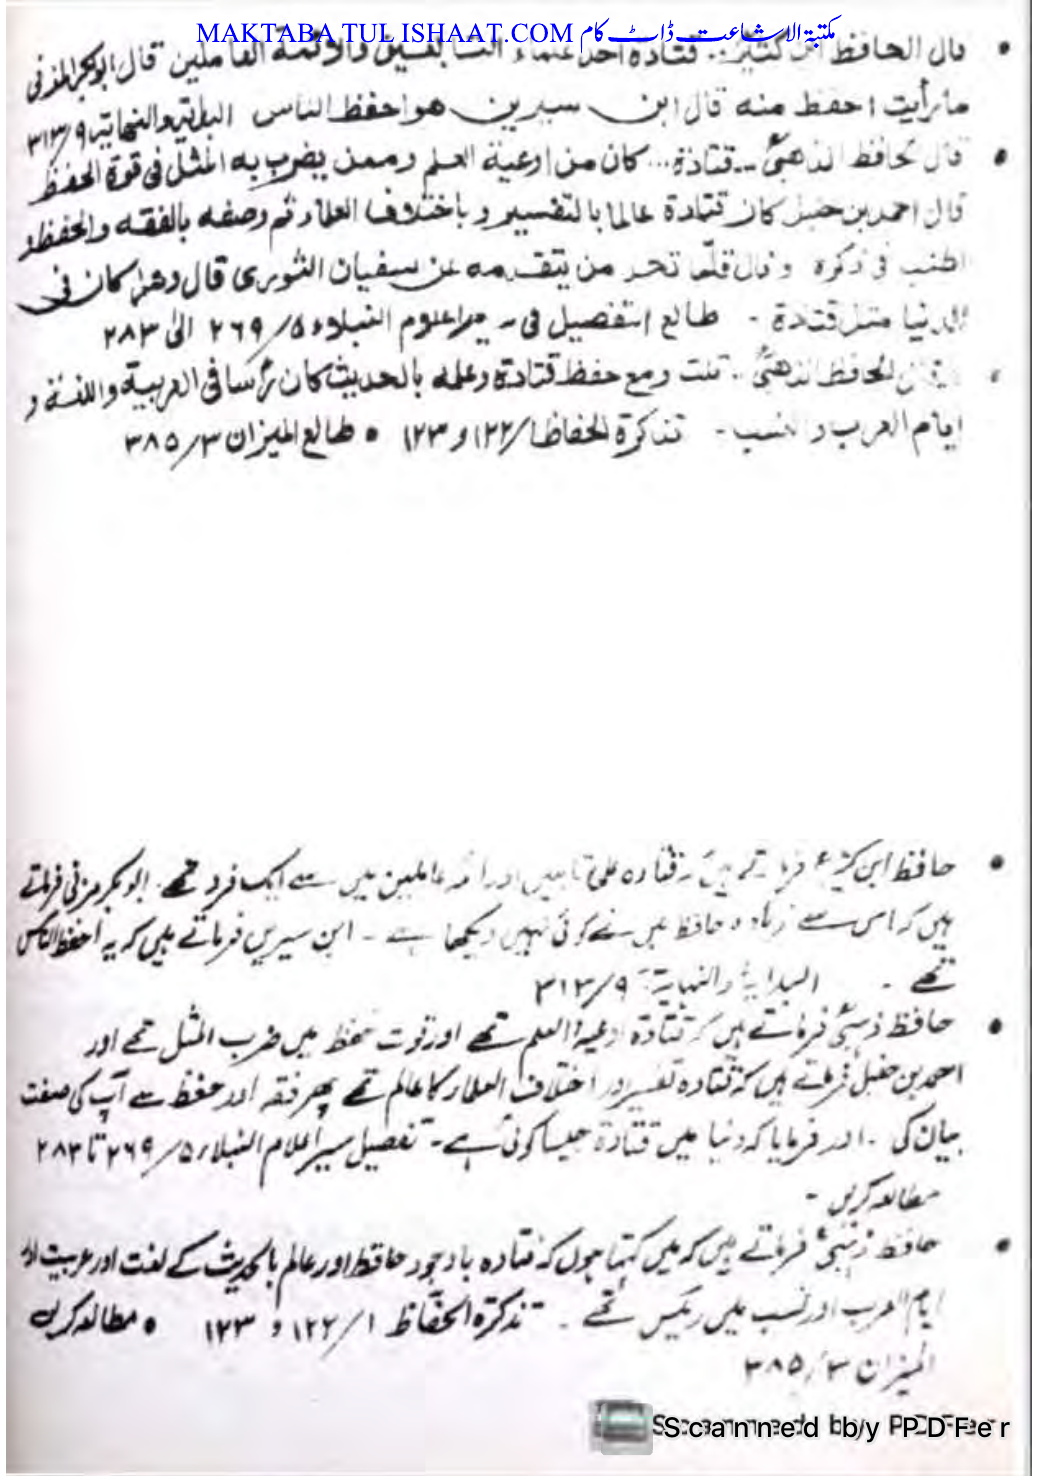 MAKTABA TUL ISHAAT.COM مکتبۃ الاشاعت ڈاٹ کام
• قال الحافظ ابن کثیرؒ.. قتادة احد علماء التابعین والائمة العاملین قال ابوبکر المزنی
ما رأیت احفظ منه قال ابن سیرین هو احفظ الناس البدایة والنهایة ۹/۳۱۳
• قال الحافظ الذهبیؒ.. قتادة... كان من اوعیة العلم وممن یضرب به المثل فی قوة الحفظ
قال احمد بن حنبل كان قتادة عالما بالتفسیر و باختلاف العلماء ثم وصفه بالفقه والحفظ و
اطنب فی ذکره و قال قلّما تجد من یتقدمه عن سفیان الثوری قال وهل كان فی
الدنیا مثل قتادة - طالع التفصیل فی سیر اعلام النبلاء ۵/۲۶۹ الیٰ ۲۸۳
• الحافظ الذهبیؒ.. قلت ومع حفظ قتادة وعلمه بالحدیث كان رأسا فی العربیة واللغة و
ایام العرب والنسب - تذکرة الحفاظ ۱/۱۲۲ و ۱۲۳ • طالع المیزان ۳/۳۸۵
• حافظ ابن کثیرؒ فرماتے ہیں قتادہ علماء تابعین اور ائمہ عاملین میں سے ایک فرد تھے. ابوبکر مزنی فرماتے
ہیں کہ اس سے زیادہ حافظ میں نے کوئی نہیں دیکھا ہے - ابن سیرین فرماتے ہیں کہ یہ احفظ الناس
تھے - البدایة والنهایة ۹/۳۱۳
• حافظ ذہبیؒ فرماتے ہیں کہ قتادہ اوعیة العلم تھے اور قوت حفظ میں ضرب المثل تھے اور
احمد بن حنبل فرماتے ہیں کہ قتادہ تفسیر اور اختلاف العلماء کا عالم تھے پھر فقہ اور حفظ سے آپ کی صفت
بیان کی - اور فرمایا کہ دنیا میں قتادة جیسا کوئی ہے - تفصیل سیر اعلام النبلاء ۵/۲۶۹ تا ۲۸۳
مطالعہ کریں -
• حافظ ذہبیؒ فرماتے ہیں کہ میں کہتا ہوں کہ قتادہ باوجود حافظ اور عالم بالحدیث کے لغت اور عربیت اور
ایام العرب اور نسب میں رئیس تھے - تذکرة الحفّاظ ۱/۱۲۲ و ۱۲۳ • مطالعہ کریں
المیزان ۳/۳۸۵
Scanned by PDFer